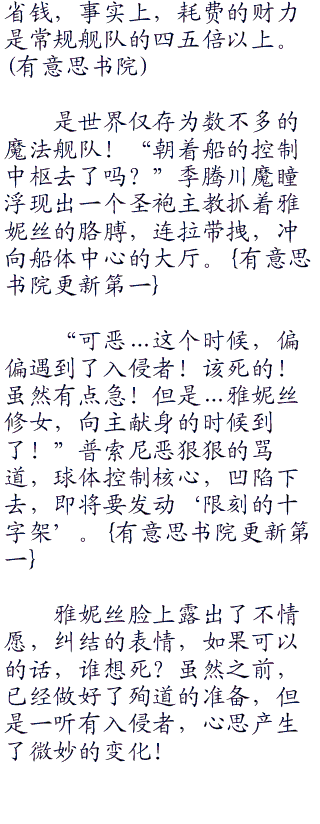 省钱，事实上，耗费的财力
是常规舰队的四五倍以上。
(有意思书院)
是世界仅存为数不多的
魔法舰队！“朝着船的控制
中枢去了吗？”季腾川魔瞳
浮现出一个圣袍主教抓着雅
妮丝的胳膊，连拉带拽，冲
向船体中心的大厅。{有意思
书院更新第一}
“可恶…这个时候，偏
偏遇到了入侵者！该死的！
虽然有点急！但是…雅妮丝
修女，向主献身的时候到
了！”普索尼恶狠狠的骂
道，球体控制核心，凹陷下
去，即将要发动‘限刻的十
字架’。{有意思书院更新第
一}
雅妮丝脸上露出了不情
愿，纠结的表情，如果可以
的话，谁想死？虽然之前，
已经做好了殉道的准备，但
是一听有入侵者，心思产生
了微妙的变化！